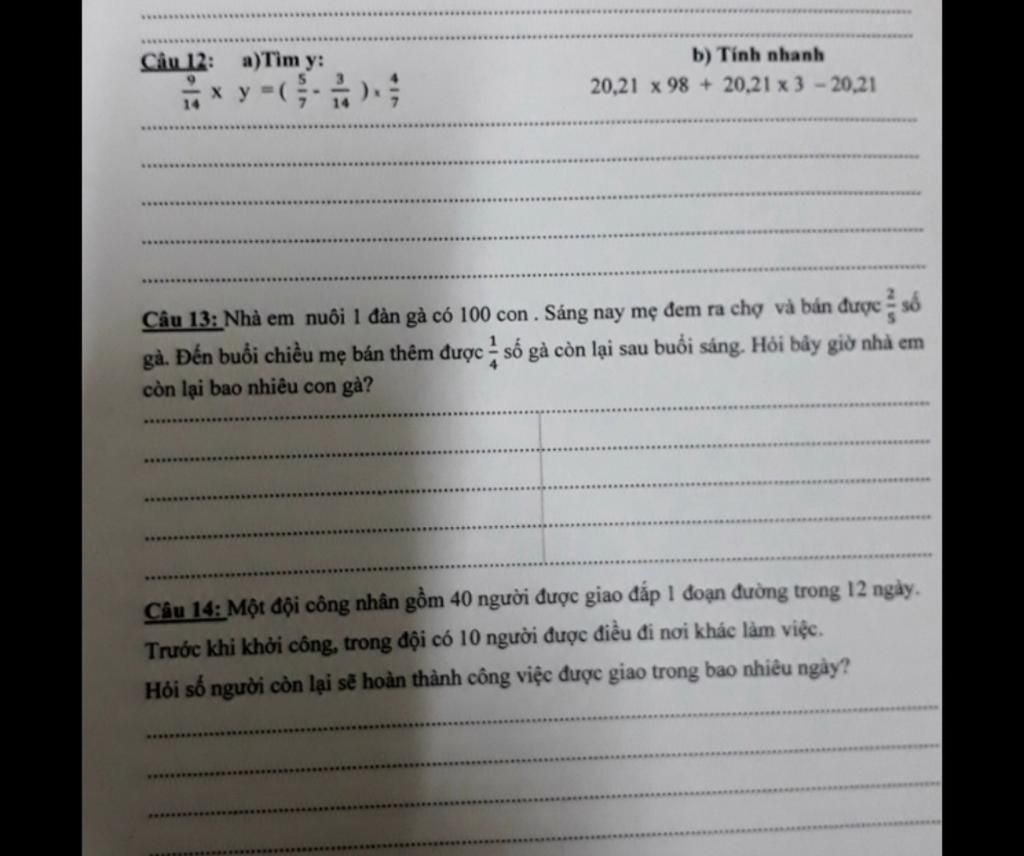 Câu 12: a)Tìm y: b) Tính nhanh
9/14 x y =( 5/7 - 3/14 ) x 4/7 20,21 x 98 + 20,21 x 3 – 20,21
Câu 13: Nhà em nuôi 1 đàn gà có 100 con . Sáng nay mẹ đem ra chợ và bán được 2/5 số
gà. Đến buổi chiều mẹ bán thêm được 1/4 số gà còn lại sau buổi sáng. Hỏi bây giờ nhà em
còn lại bao nhiêu con gà?
Câu 14: Một đội công nhân gồm 40 người được giao đắp 1 đoạn đường trong 12 ngày.
Trước khi khởi công, trong đội có 10 người được điều đi nơi khác làm việc.
Hỏi số người còn lại sẽ hoàn thành công việc được giao trong bao nhiêu ngày?